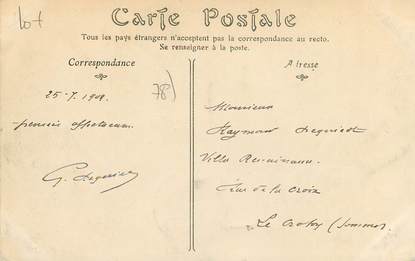 lot
Carte Postale
Tous les pays étrangers n'acceptent pas la correspondance au recto.
Se renseigner à la poste.
Correspondance
Adresse
78)
25-7.1908.
G.
Monsieur
Raymond
Villa
de la Croix
Le Crotoy (Somme)